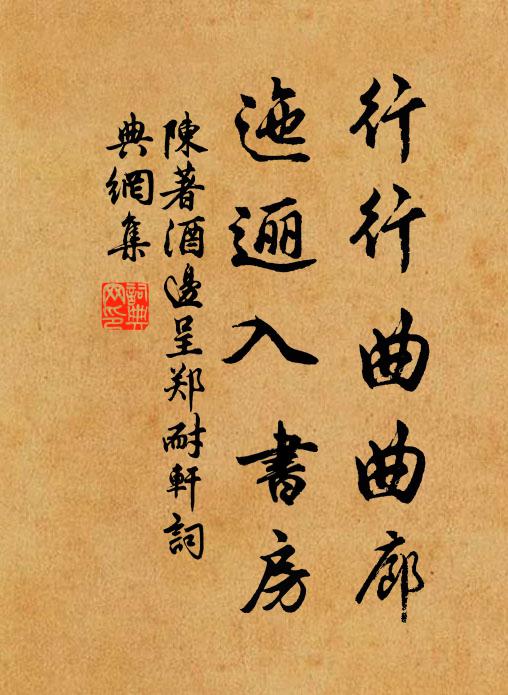 行行曲曲廊
迤逦入書房
陳著酒邊呈郑耐軒詞
典網集
詞典
网印